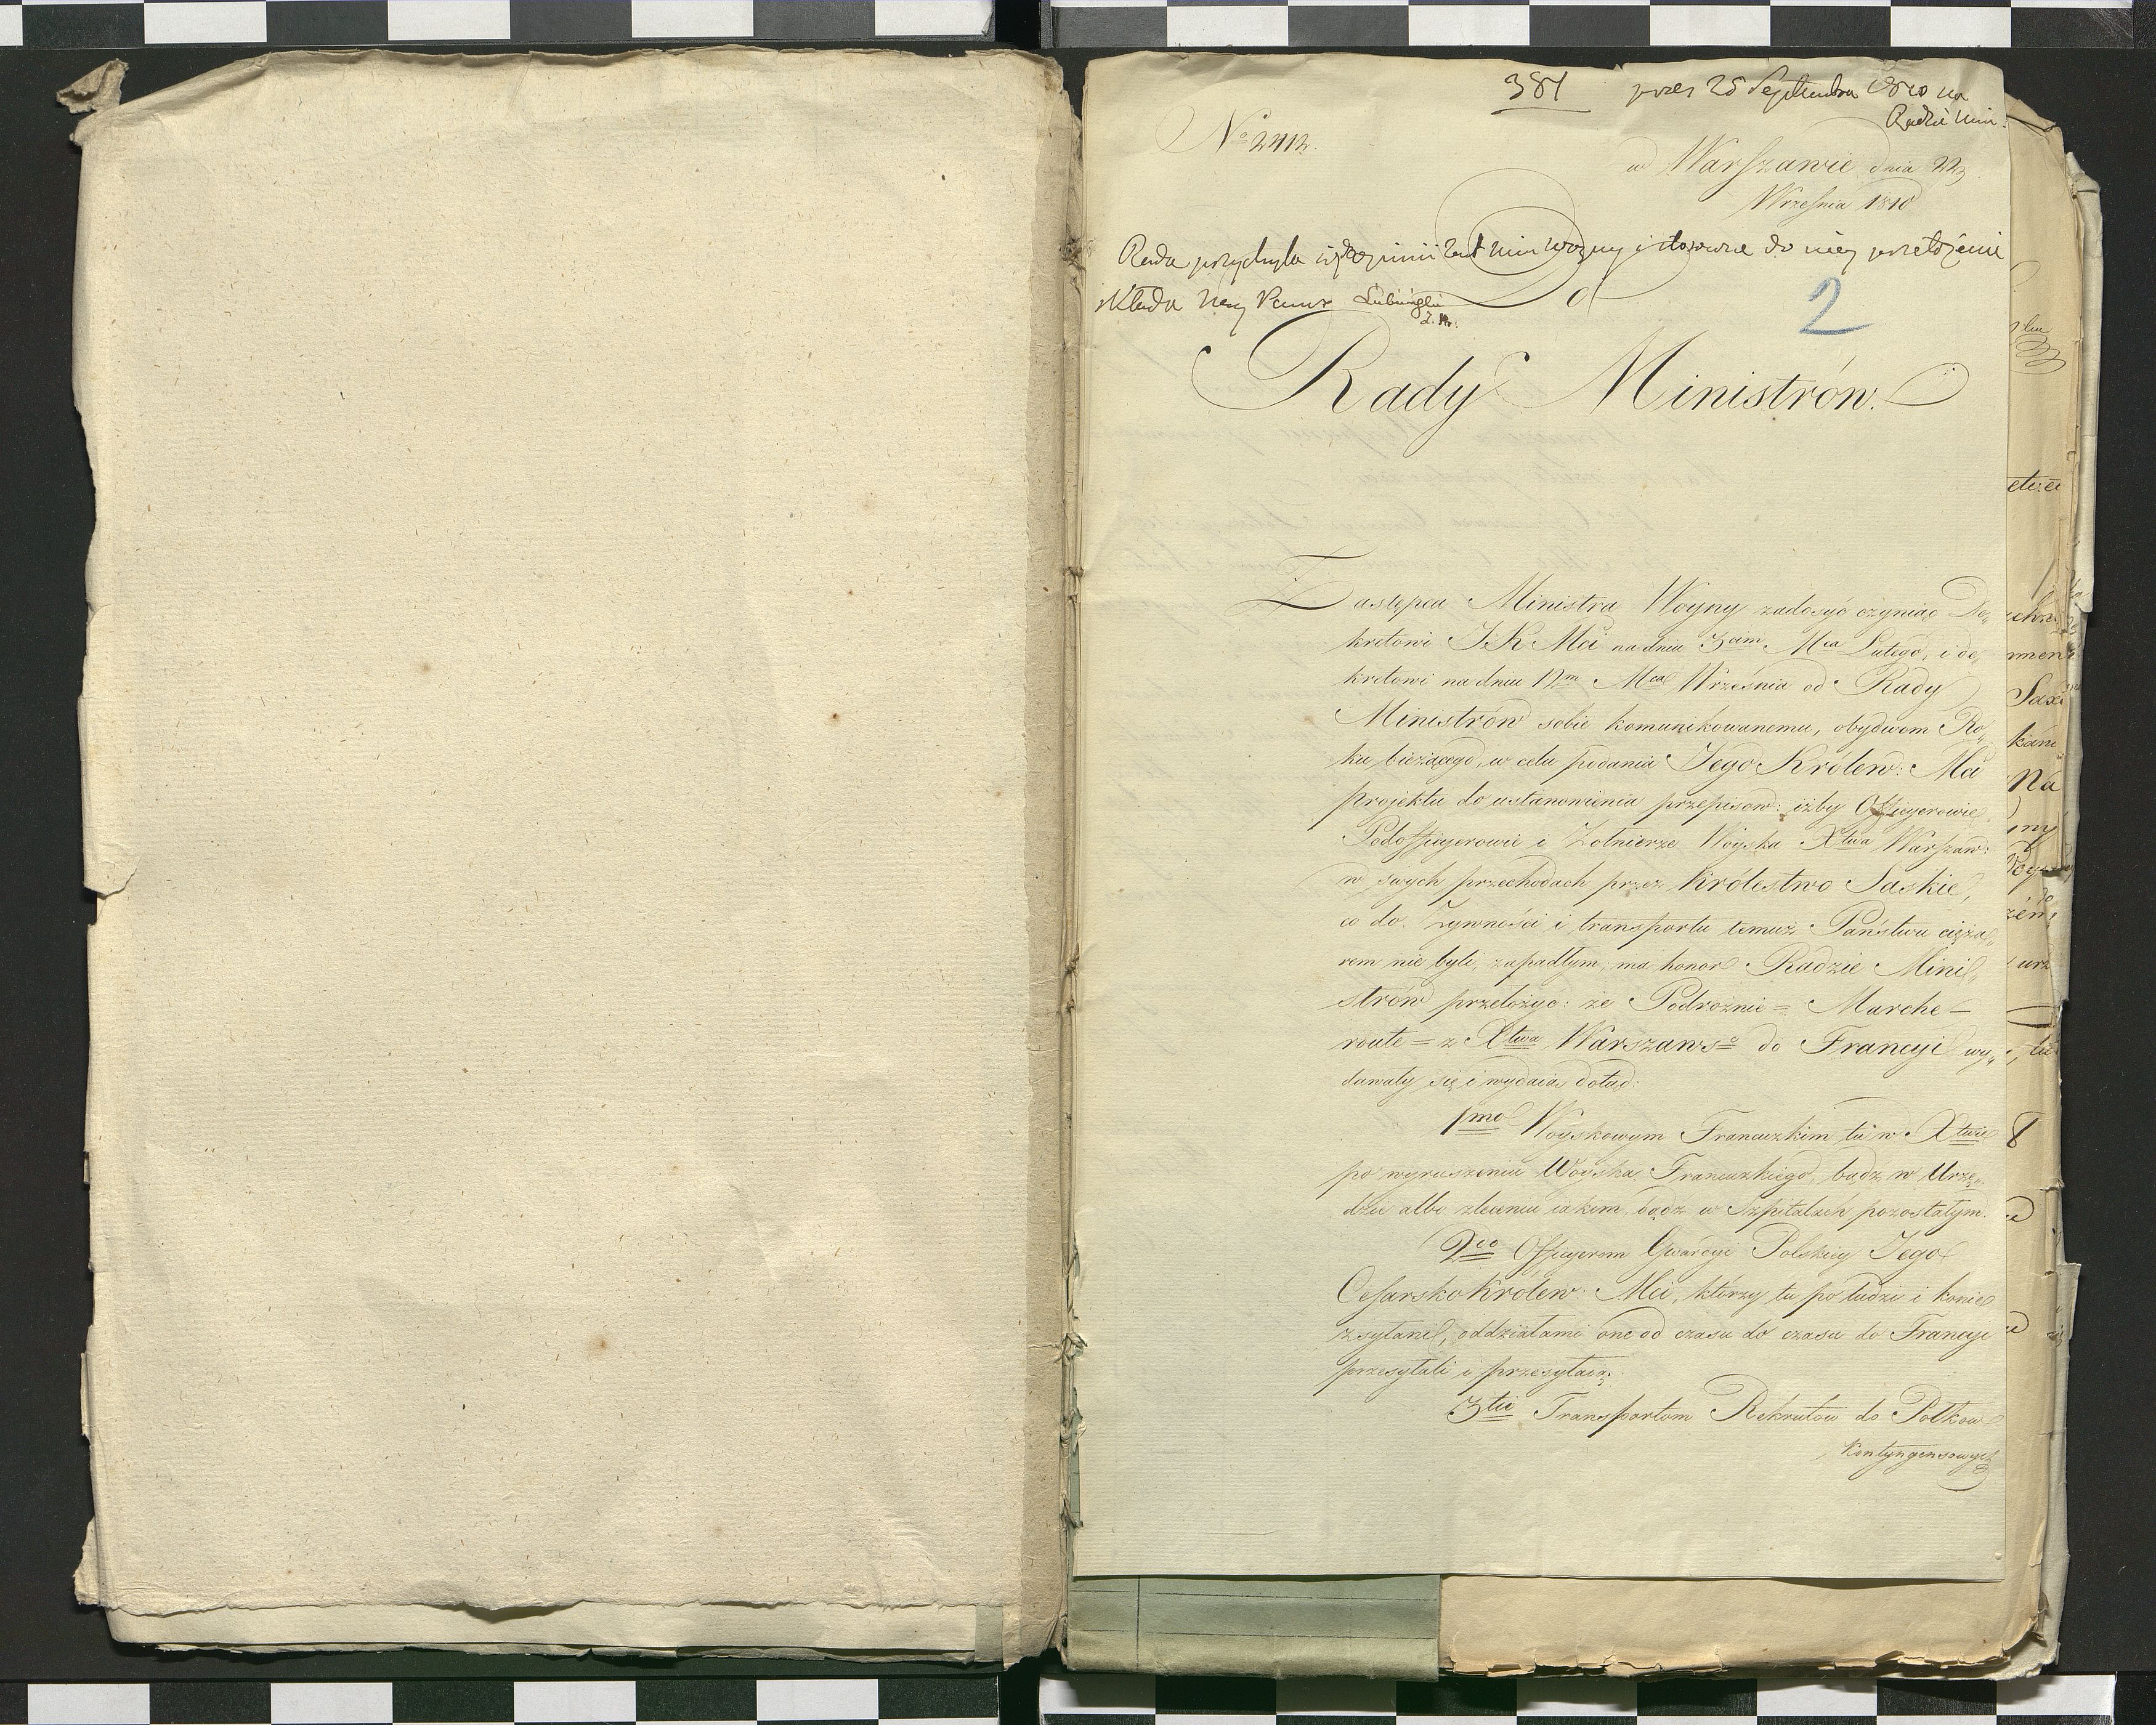 381 przez 25 Septembra 1810 na
Radzie Min:
No 2412.
w Warszawie dnia 22
Września 1810
Rada przychyla się do opinii Zast Min Woyny i stosowne do niey przełożenie
składa Nay Panu Łubieński
Do
2
Rady Ministrów.
Zastępca Ministra Woyny zadosyć czyniąc De„
kretowi J. K. Mci na dniu 3cim Mca Lutego, i de„
kretowi na dniu 12m Mca Września od Rady
Ministrów sobie komunikowanemu, obydwom Ro„
ku bieżącego, w celu podania Jego Królew: Mci
projektu do ustanowienia przepisow: iżby Officyerowie
Podofficyerowie i Żołnierze Woyska Xtwa Warszaw:
w swych przechodach przez Królestwo Saskie,
co do Żywności i transportu temuż Państwu cięża„
rem nie byli, zapadłym; ma honor Radzie Mini„
strów przełożyć: że Podróżnie = Marche-
route = z Xtwa Warszaws° do Francyi wy„
dawały się i wydaią dotąd:
1mo Woyskowym Francuzkim tu w Xtwie
po wyruszeniu Woyska Francuzkiego, bądź w Urzę„
dzie albo zleceniu iakim, bądź w Szpitalach pozostałym.
2do Officyerom Gwardyi Polskiey Jego
Cesarsko Królew: Mci, którzy tu po ludzi i konie
zsyłani, oddziałami one od czasu do czasu do Francyi
przesyłali i przesyłaią.
3tio Transportom Rekrutow do Pułkow
Kontyngensowych